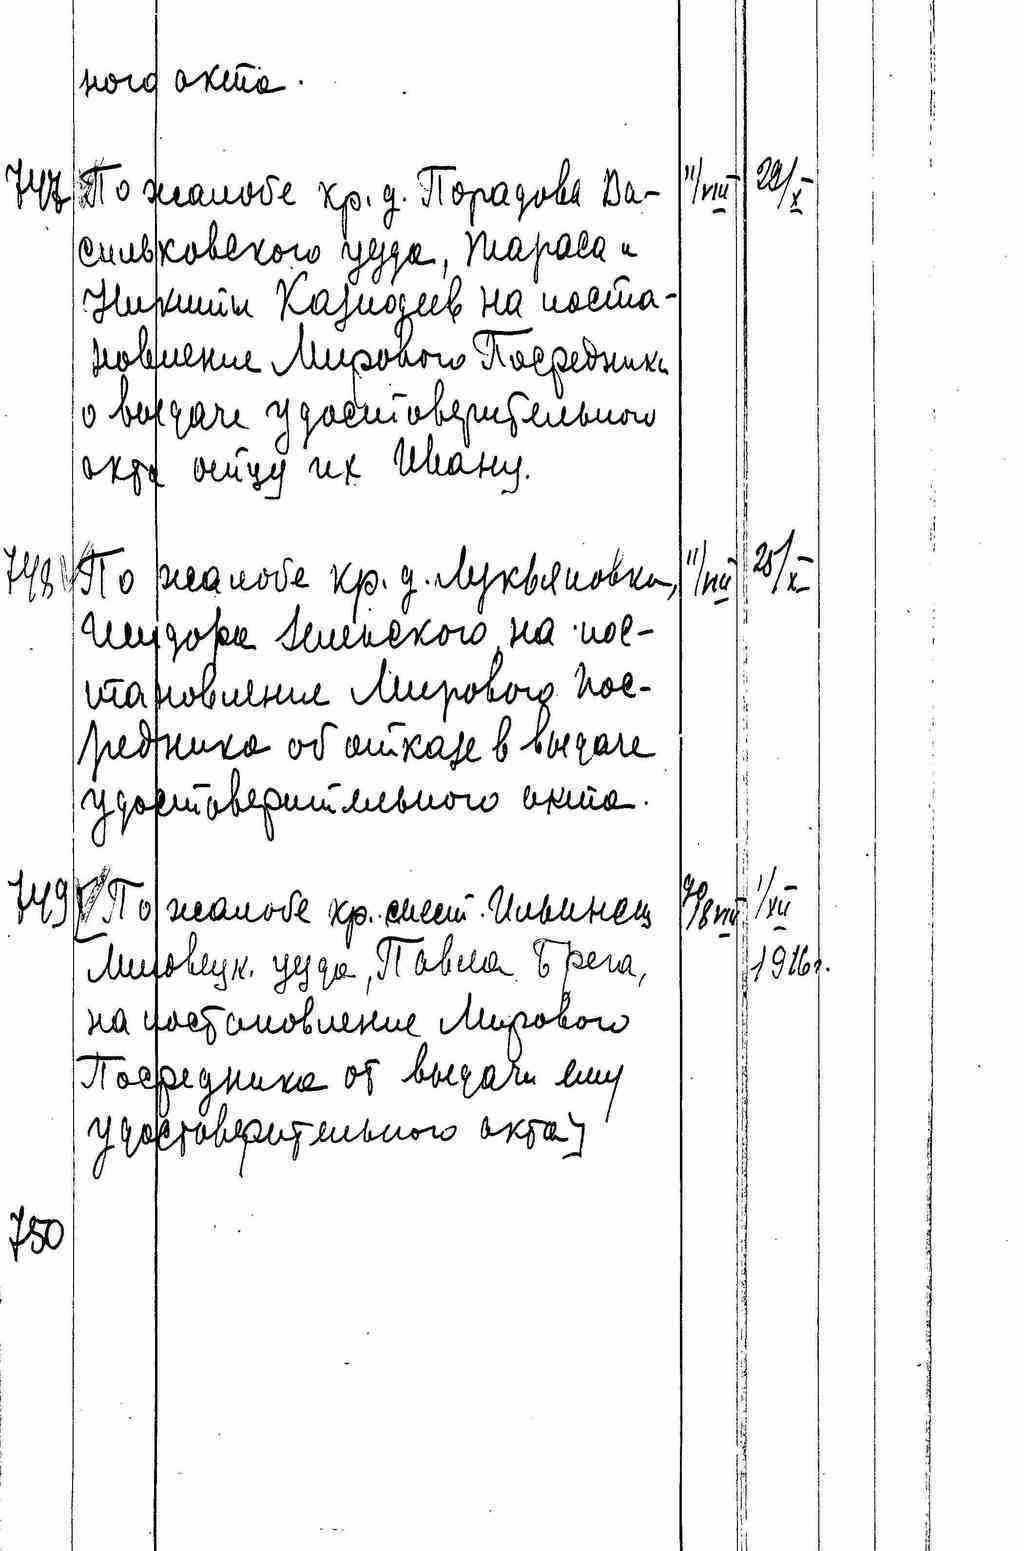 ного акта.
747 По жалобе кр. д. Порадова Ва- 11/VIII 29/X
сильковского уезда, Тараса и
Никиты Казнодеев на поста-
новление Мирового Посредника
о выдаче удостоверительного
акта отцу их Ивану.
748 По жалобе кр. д. Лукьяновки, 11/VIII 25/X
Исидора Зеленского, на пос-
тановление Мирового Пос-
редника об отказе в выдаче
удостоверительного акта.
749 По жалобе кр. мест. Ильинец /8 VIII 1/XII
Липовецк. уезда, Павла Брега, 1916г.
на постановление Мирового
Посредника от выдачи ему
удостоверительного акта
750